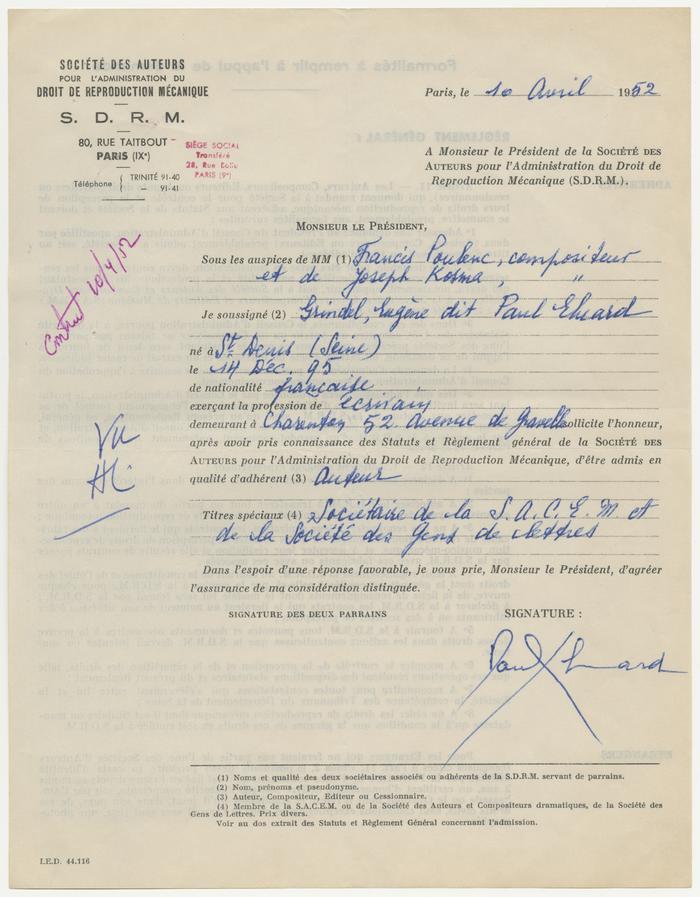 SOCIÉTÉ DES AUTEURS
POUR L'ADMINISTRATION DU
DROIT DE REPRODUCTION MÉCANIQUE
S. D. R. M.
80, RUE TAITBOUT
PARIS (IXe)
Téléphone { TRINITÉ 91-40
— 91-41
SIÈGE SOCIAL
Transféré
28, Rue Ballu
PARIS (9e)
Paris, le 10 Avril 1952
A Monsieur le Président de la SOCIÉTÉ DES
AUTEURS pour l'Administration du Droit de
Reproduction Mécanique (S.D.R.M.).
MONSIEUR LE PRÉSIDENT,
Sous les auspices de MM (1) Francis Poulenc, compositeur
et de Joseph Kosma, "
Je soussigné (2) Grindel, Eugène dit Paul Eluard
né à St Denis (Seine)
le 14 Déc. 95
de nationalité française
exerçant la profession de écrivain
demeurant à Charenton 52. Avenue de Gravelle sollicite l'honneur,
après avoir pris connaissance des Statuts et Règlement général de la SOCIÉTÉ DES
AUTEURS pour l'Administration du Droit de Reproduction Mécanique, d'être admis en
qualité d'adhérent (3) Auteur
Titres spéciaux (4) Sociétaire de la S.A.C.E.M et
de la Société des Gens de Lettres
Dans l'espoir d'une réponse favorable, je vous prie, Monsieur le Président, d'agréer
l'assurance de ma considération distinguée.
SIGNATURE DES DEUX PARRAINS
SIGNATURE :
Paul Eluard
Contrat 10/4/52
Vu
(1) Noms et qualité des deux sociétaires associés ou adhérents de la S.D.R.M. servant de parrains.
(2) Nom, prénoms et pseudonyme.
(3) Auteur, Compositeur, Editeur ou Cessionnaire.
(4) Membre de la S.A.C.E.M. ou de la Société des Auteurs et Compositeurs dramatiques, de la Société des
Gens de Lettres. Prix divers.
Voir au dos extrait des Statuts et Règlement Général concernant l'admission.
I.E.D. 44.116